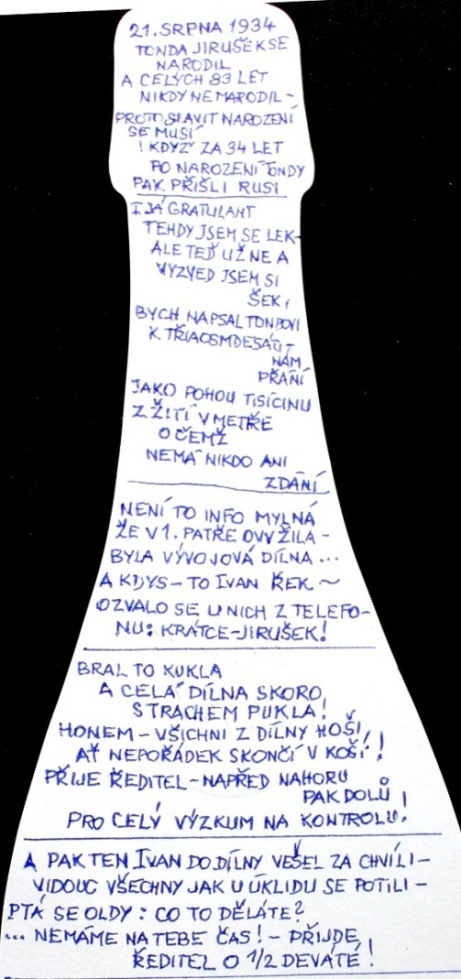 21. SRPNA 1934
TONDA JIRUŠEK SE
NARODIL
A CELÝCH 83 LET
NIKDY NEMARODIL –
PROTO SLAVIT NAROZENÍ
SE MUSÍ
I KDYŽ ZA 34 LET
PO NAROZENÍ TONDY
PAK PŘIŠLI RUSI
I JÁ GRATULANT
TEHDY JSEM SE LEK–
ALE TEĎ UŽ NE A
VYZVED JSEM SI
ŠEK,
BYCH NAPSAL TONDOVI
K TŘIAOSMDESÁTI–
NÁM
PŘÁNÍ
JAKO POHOU TISÍCINU
Z ŽITÍ V METŘE
O ČEMŽ
NEMÁ NIKDO ANI
ZDÁNÍ
NENÍ TO INFO MYLNÁ
ŽE V 1. PATŘE OVVŽILA –
BYLA VÝVOJOVÁ DÍLNA ...
A KDYS – TO IVAN ŘEK ~
OZVALO SE U NICH Z TELEFO–
NU: KRÁTCE – JIRUŠEK!
BRAL TO KUKLA
A CELÁ DÍLNA SKORO
STRACHEM PUKLA!
HONEM – VŠICHNI Z DÍLNY HOŠI,
AŤ NEPOŘÁDEK SKONČÍ V KOŠI!!
PŘIJE ŘEDITEL – NAPŘED NAHORU
PAK DOLŮ
PRO CELÝ VÝZKUM NA KONTROLU!
A PAK TEN IVAN DO DÍLNY VEŠEL ZA CHVÍLI –
VIDOUC VŠECHNY JAK U ÚKLIDU SE POTILI –
PTÁ SE OLDY: CO TO DĚLÁTE?
... NEMÁME NA TEBE ČAS! – PŘIJDE
ŘEDITEL O 1/2 DEVÁTÉ!